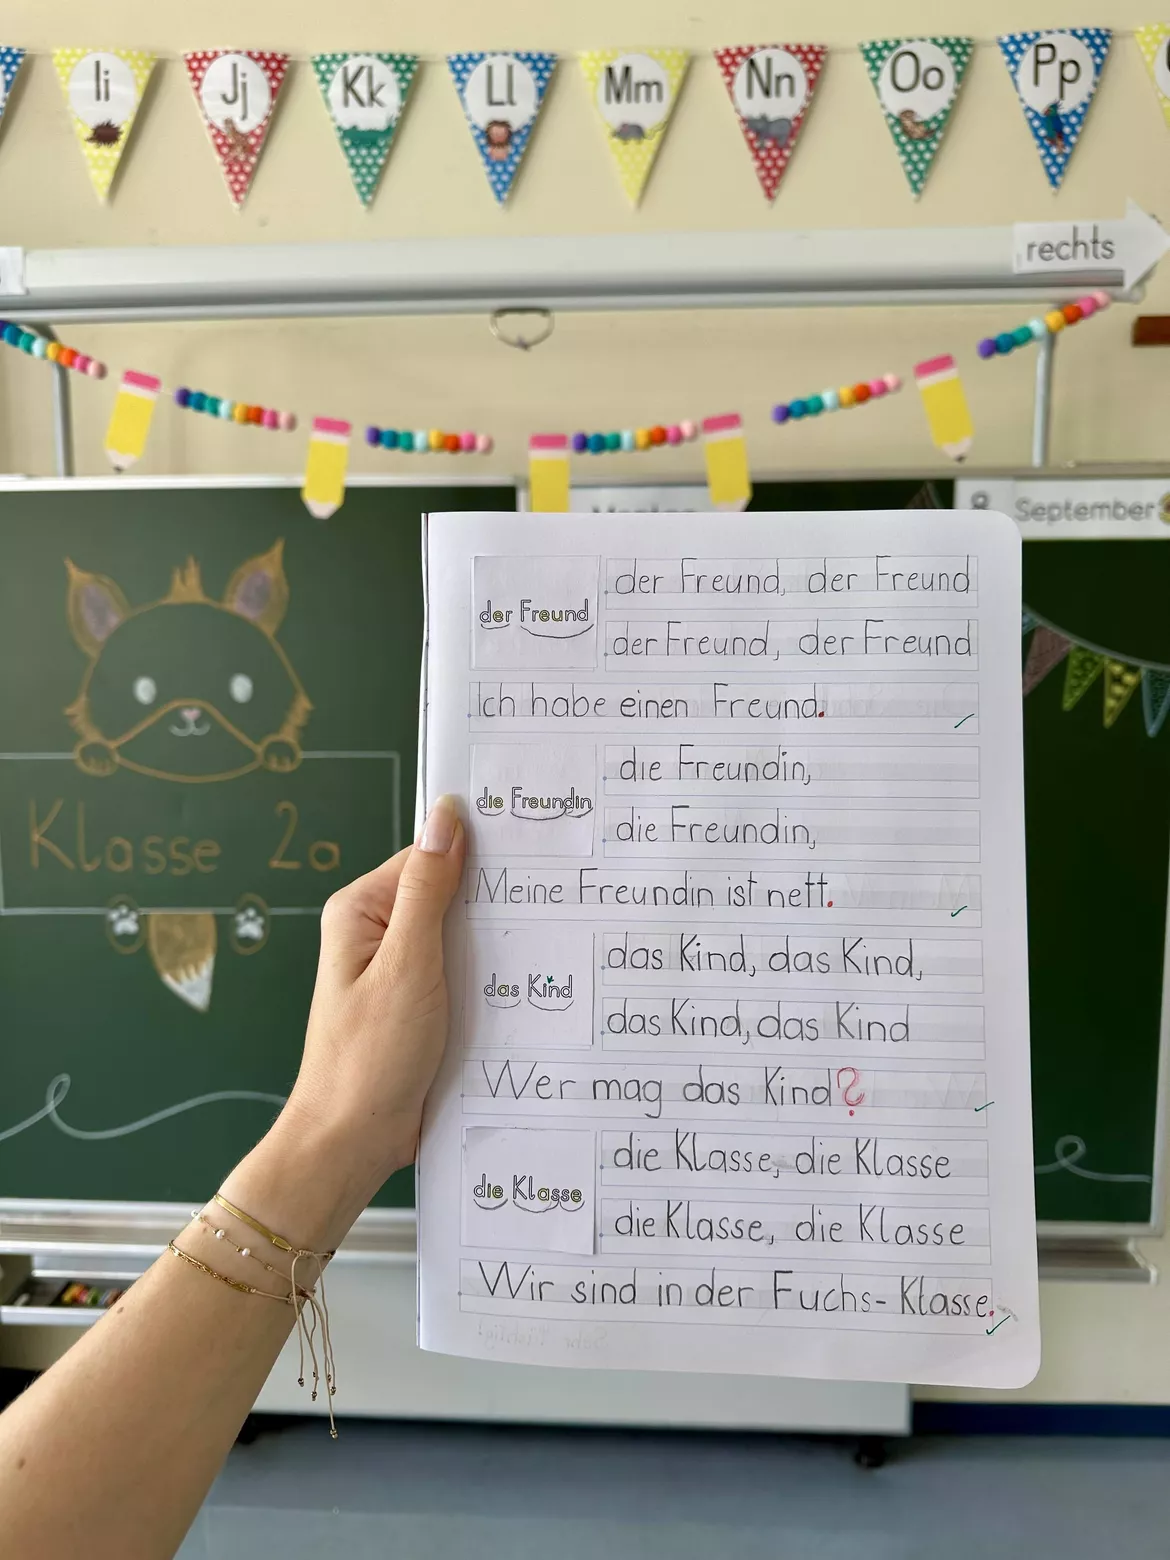 Ii Jj Kk Ll Mm Nn Oo Pp
rechts
8 September
Klasse 2a
der Freund
der Freund, der Freund
der Freund, der Freund
Ich habe einen Freund.
die Freundin
die Freundin,
die Freundin,
Meine Freundin ist nett.
das Kind
das Kind, das Kind,
das Kind, das Kind
Wer mag das Kind?
die Klasse
die Klasse, die Klasse
die Klasse, die Klasse
Wir sind in der Fuchs-Klasse.